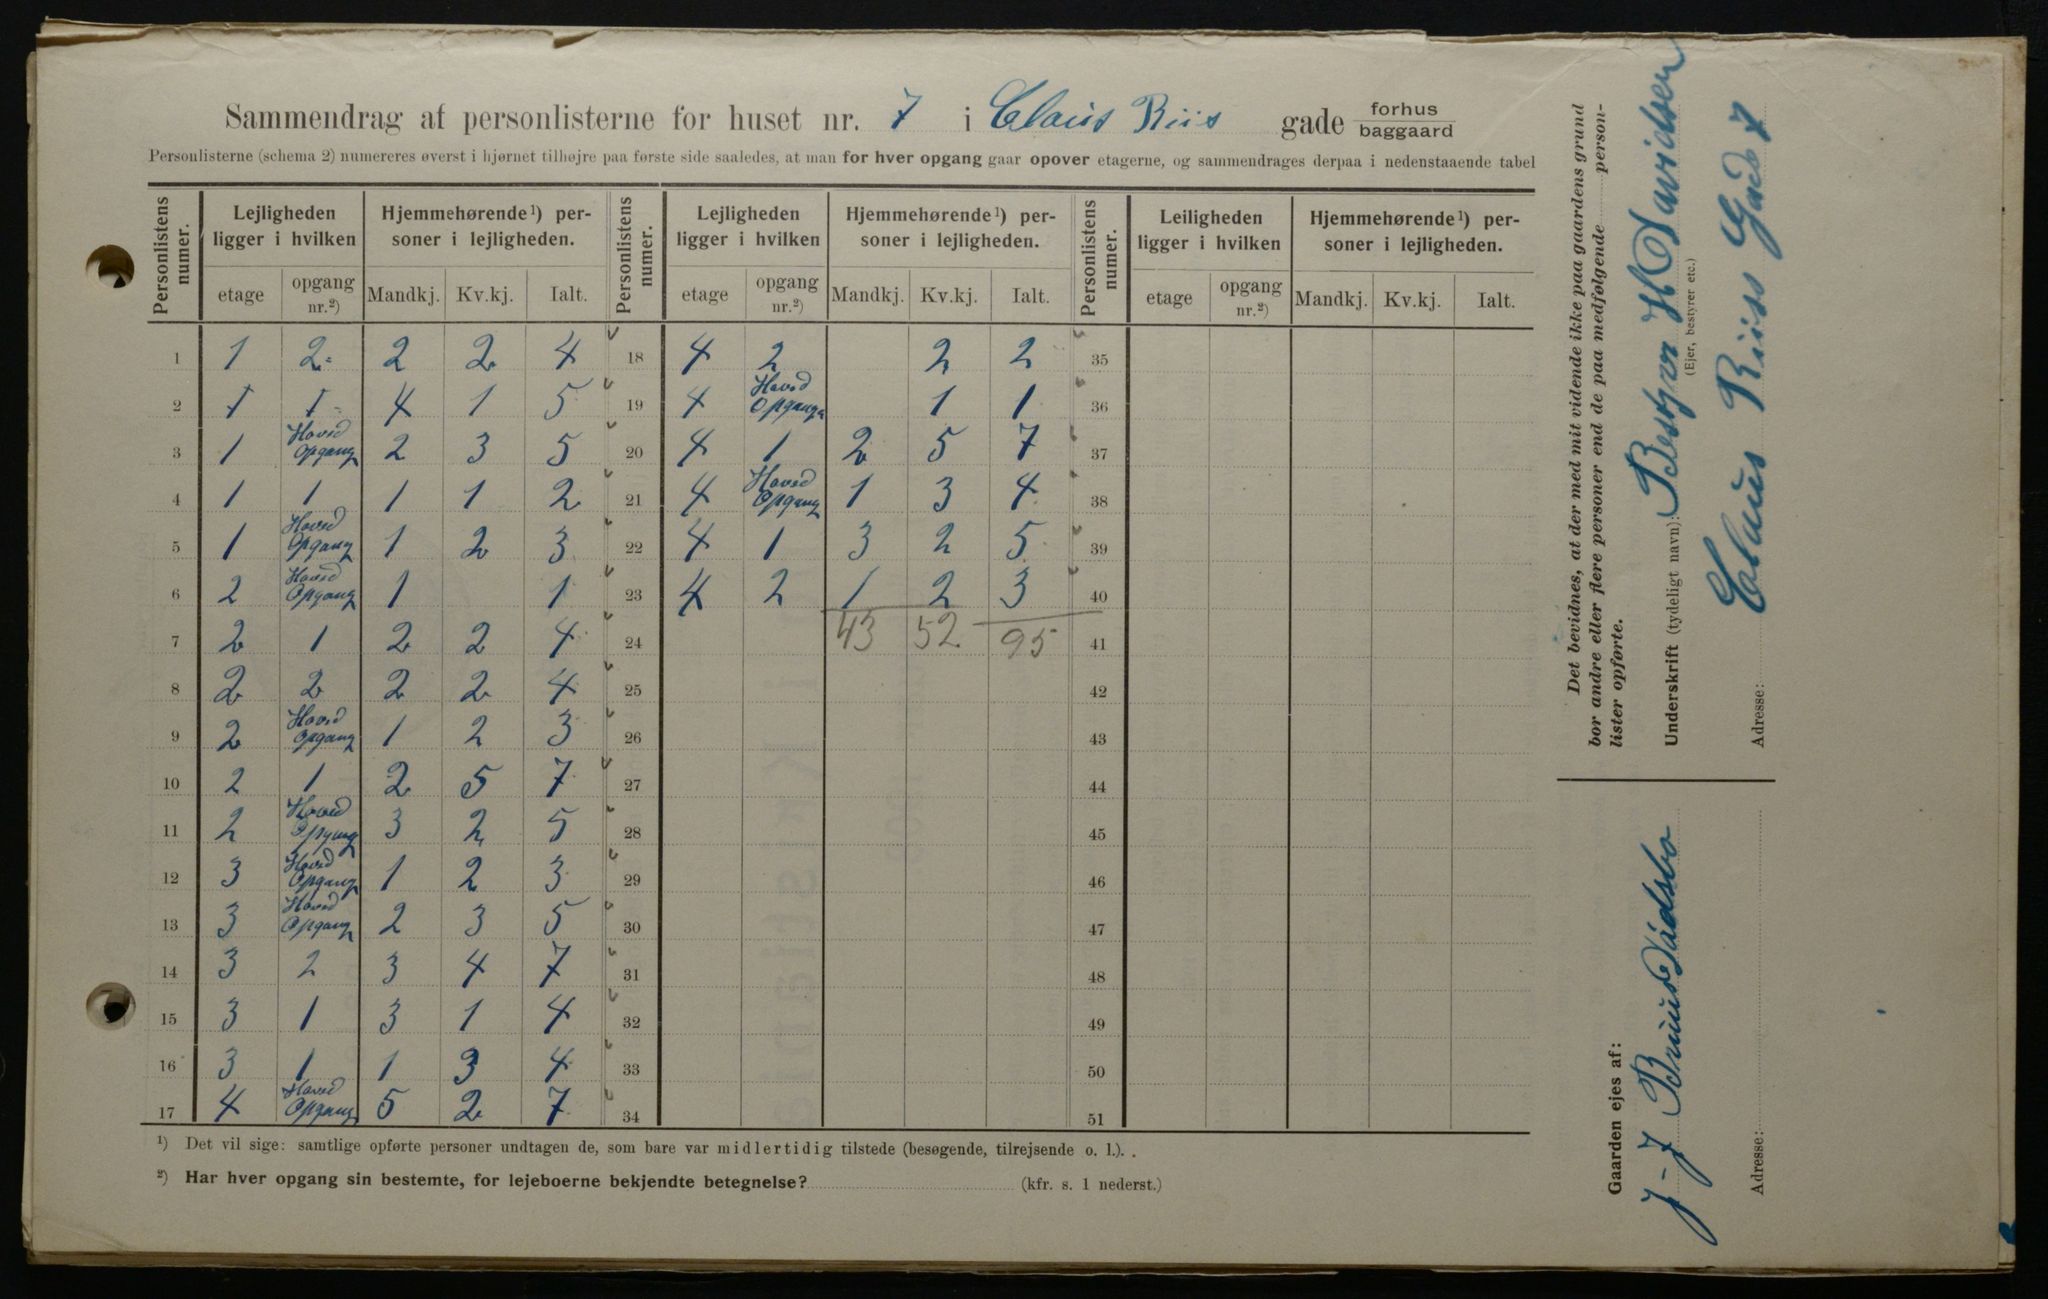 Sammendrag af personlisterne for huset nr. 7 i Claus Riis gade forhus baggaard
Personlisterne (schema 2) numereres øverst i hjørnet tilhøjre paa første side saaledes, at man for hver opgang gaar opover etagerne, og sammendrages derpaa i nedenstaaende tabel
Personlistens numer. Lejligheden ligger i hvilken Hjemmehørende 1) personer i lejligheden. Personlistens numer. Lejligheden ligger i hvilken Hjemmehørende 1) personer i lejligheden. Personlistens numer. Leiligheden ligger i hvilken Hjemmehørende 1) personer i lejligheden.
etage opgang nr. 2) Mandkj. Kv.kj. Ialt. etage opgang nr. 2) Mandkj. Kv.kj. Ialt. etage opgang nr. 2) Mandkj. Kv.kj. Ialt.
1 1 2 2 2 4 18 4 2 2 2 35
2 1 1 4 1 5 19 4 Hoved Opgang 1 1 36
3 1 Hoved Opgang 2 3 5 20 4 1 2 5 7 37
4 1 1 1 1 2 21 4 Hoved Opgang 1 3 4 38
5 1 Hoved Opgang 1 2 3 22 4 1 3 2 5 39
6 2 Hoved Opgang 1 1 23 4 2 1 2 3 40
7 2 1 2 2 4 24 43 52 95 41
8 2 2 2 2 4 25 42
9 2 Hoved Opgang 1 2 3 26 43
10 2 1 2 5 7 27 44
11 2 Hoved Opgang 3 2 5 28 45
12 3 Hoved Opgang 1 2 3 29 46
13 3 Hoved Opgang 2 3 5 30 47
14 3 2 3 4 7 31 48
15 3 1 3 1 4 32 49
16 3 1 1 3 4 33 50
17 4 Hoved Opgang 5 2 7 34 51
1) Det vil sige: samtlige opførte personer undtagen de, som bare var midlertidig tilstede (besøgende, tilrejsende o. l.).
2) Har hver opgang sin bestemte, for lejeboerne bekjendte betegnelse? (kfr. s. 1 nederst.)
Det bevidnes, at der med mit vidende ikke paa gaardens grund
bor andre eller flere personer end de paa medfølgende person-
lister opførte.
Underskrift (tydeligt navn): Bestyrer H Davidsen
(Ejer, bestyrer etc.)
Adresse: Claus Riiss Gade 7
Gaarden ejes af:
Adresse: